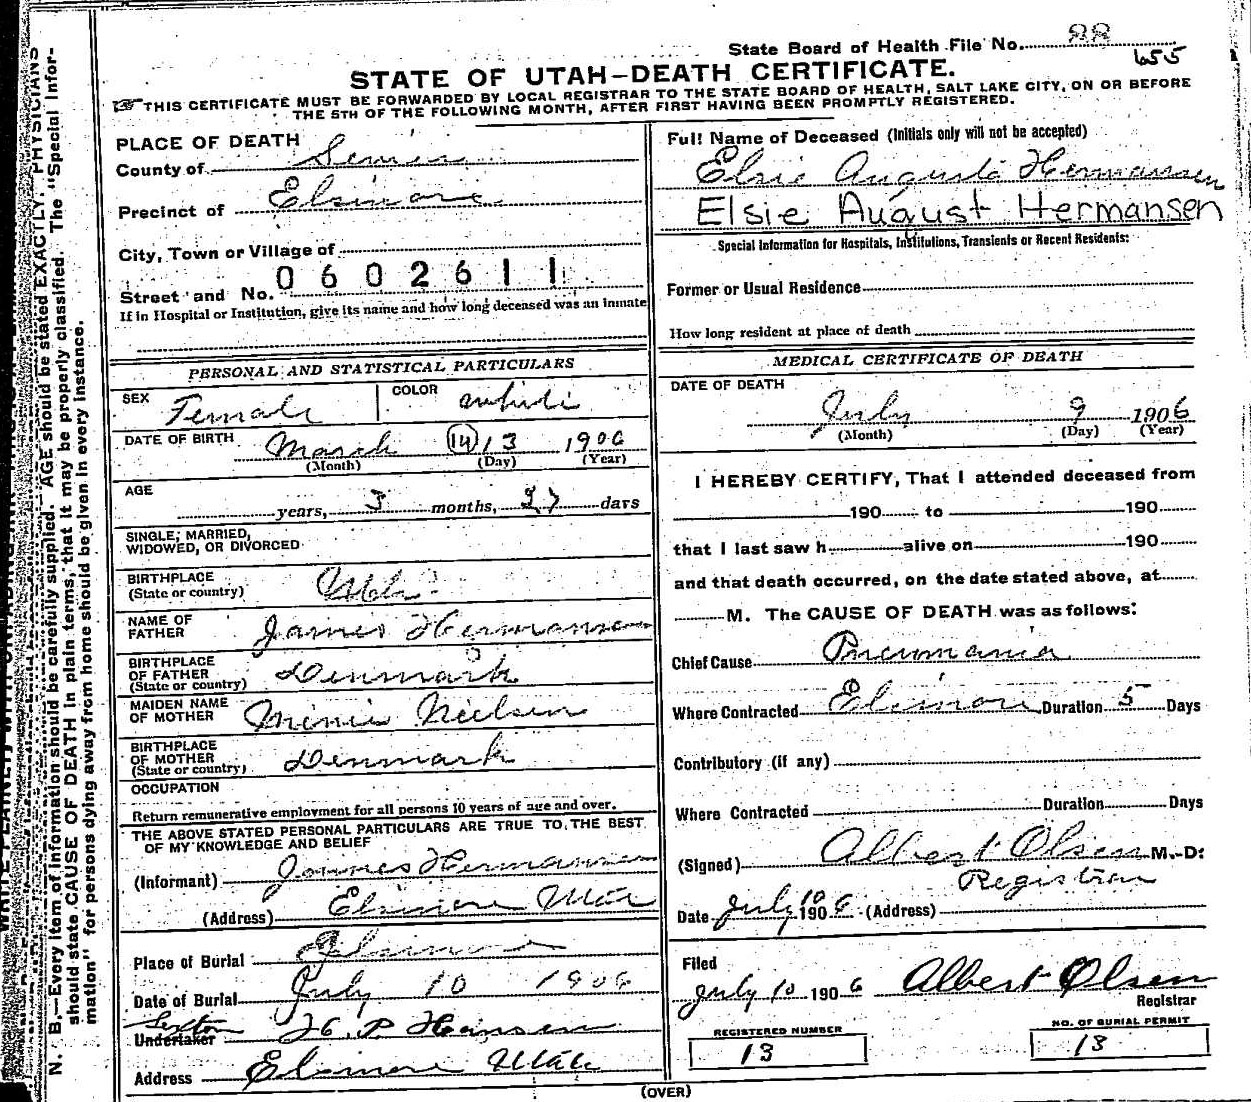 State Board of Health File No. 88
655
STATE OF UTAH—DEATH CERTIFICATE.
THIS CERTIFICATE MUST BE FORWARDED BY LOCAL REGISTRAR TO THE STATE BOARD OF HEALTH, SALT LAKE CITY, ON OR BEFORE
THE 5TH OF THE FOLLOWING MONTH, AFTER FIRST HAVING BEEN PROMPTLY REGISTERED.
PLACE OF DEATH
County of Sevier
Precinct of Elsinore
City, Town or Village of
0602611
Street and No.
If in Hospital or Institution, give its name and how long deceased was an inmate
PERSONAL AND STATISTICAL PARTICULARS
SEX Female COLOR white
DATE OF BIRTH March (14) 13 1906
(Month) (Day) (Year)
AGE
years, 3 months, 27 days
SINGLE, MARRIED,
WIDOWED, OR DIVORCED
BIRTHPLACE
(State or country) Utah
NAME OF
FATHER James Hermansen
BIRTHPLACE
OF FATHER
(State or country) Denmark
MAIDEN NAME
OF MOTHER Minnie Nielsen
BIRTHPLACE
OF MOTHER
(State or country) Denmark
OCCUPATION
Return remunerative employment for all persons 10 years of age and over.
THE ABOVE STATED PERSONAL PARTICULARS ARE TRUE TO THE BEST
OF MY KNOWLEDGE AND BELIEF
(Informant) James Hermansen
(Address) Elsinore Utah
Place of Burial Elsinore
Date of Burial July 10 1906
Sexton
Undertaker H. P. Hansen
Address Elsinore Utah
Full Name of Deceased (Initials only will not be accepted)
Elsie Augusta Hermansen
Elsie August Hermansen
Special Information for Hospitals, Institutions, Transients or Recent Residents:
Former or Usual Residence
How long resident at place of death
MEDICAL CERTIFICATE OF DEATH
DATE OF DEATH
July 9 1906
(Month) (Day) (Year)
I HEREBY CERTIFY, That I attended deceased from
190 to 190
that I last saw h alive on 190
and that death occurred, on the date stated above, at
M. The CAUSE OF DEATH was as follows:
Chief Cause Pneumonia
Where Contracted Elsinore Duration 5 Days
Contributory (if any)
Where Contracted Duration Days
(Signed) Albert Olsen M. D.
Registrar
Date July 10 1906 (Address)
Filed
July 10 1906 Albert Olsen
Registrar
REGISTERED NUMBER
13
NO. OF BURIAL PERMIT
13
(OVER)
N. B.—Every item of information should be carefully supplied. AGE should be stated EXACTLY. PHYSICIANS
should state CAUSE OF DEATH in plain terms, that it may be properly classified. The "Special Infor-
mation" for persons dying away from home should be given in every instance.